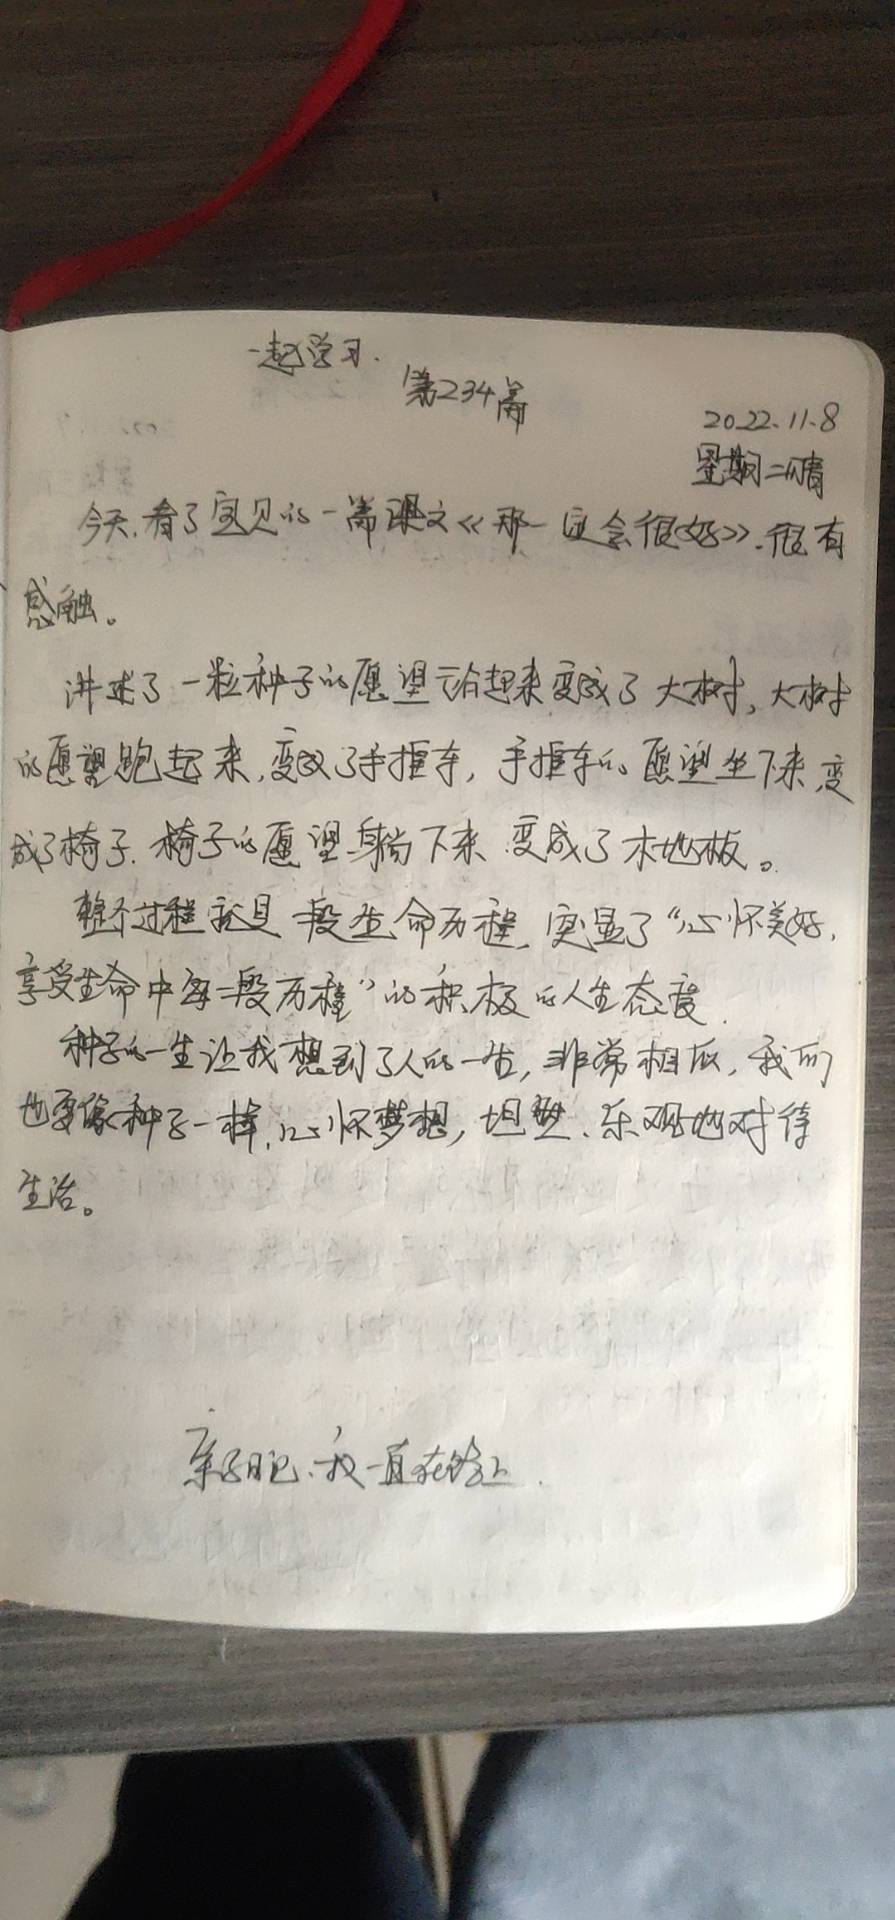 一起学习.
第234篇
2022.11.8
星期二 晴
今天,看了宝贝的一篇课文《那一定会很好》.很有
感触。
讲述了一粒种子的愿望站起来变成了大树,大树
的愿望跑起来,变成了手推车,手推车的愿望坐下来,变
成了椅子.椅子的愿望躺下来.变成了木地板。
整个过程就是一段生命历程,突显了“心怀美好,
享受生命中每一段历程”的积极的人生态度.
种子的一生让我想到了人的一生,非常相似,我们
也要像种子一样,心怀梦想,坦然、乐观地对待
生活。
亲子日记、我一直在路上.